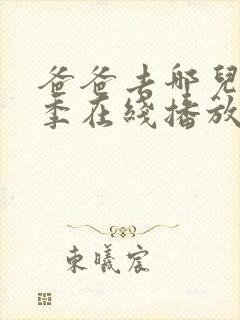 爸爸去哪兒
季在綫播放
東曦宸